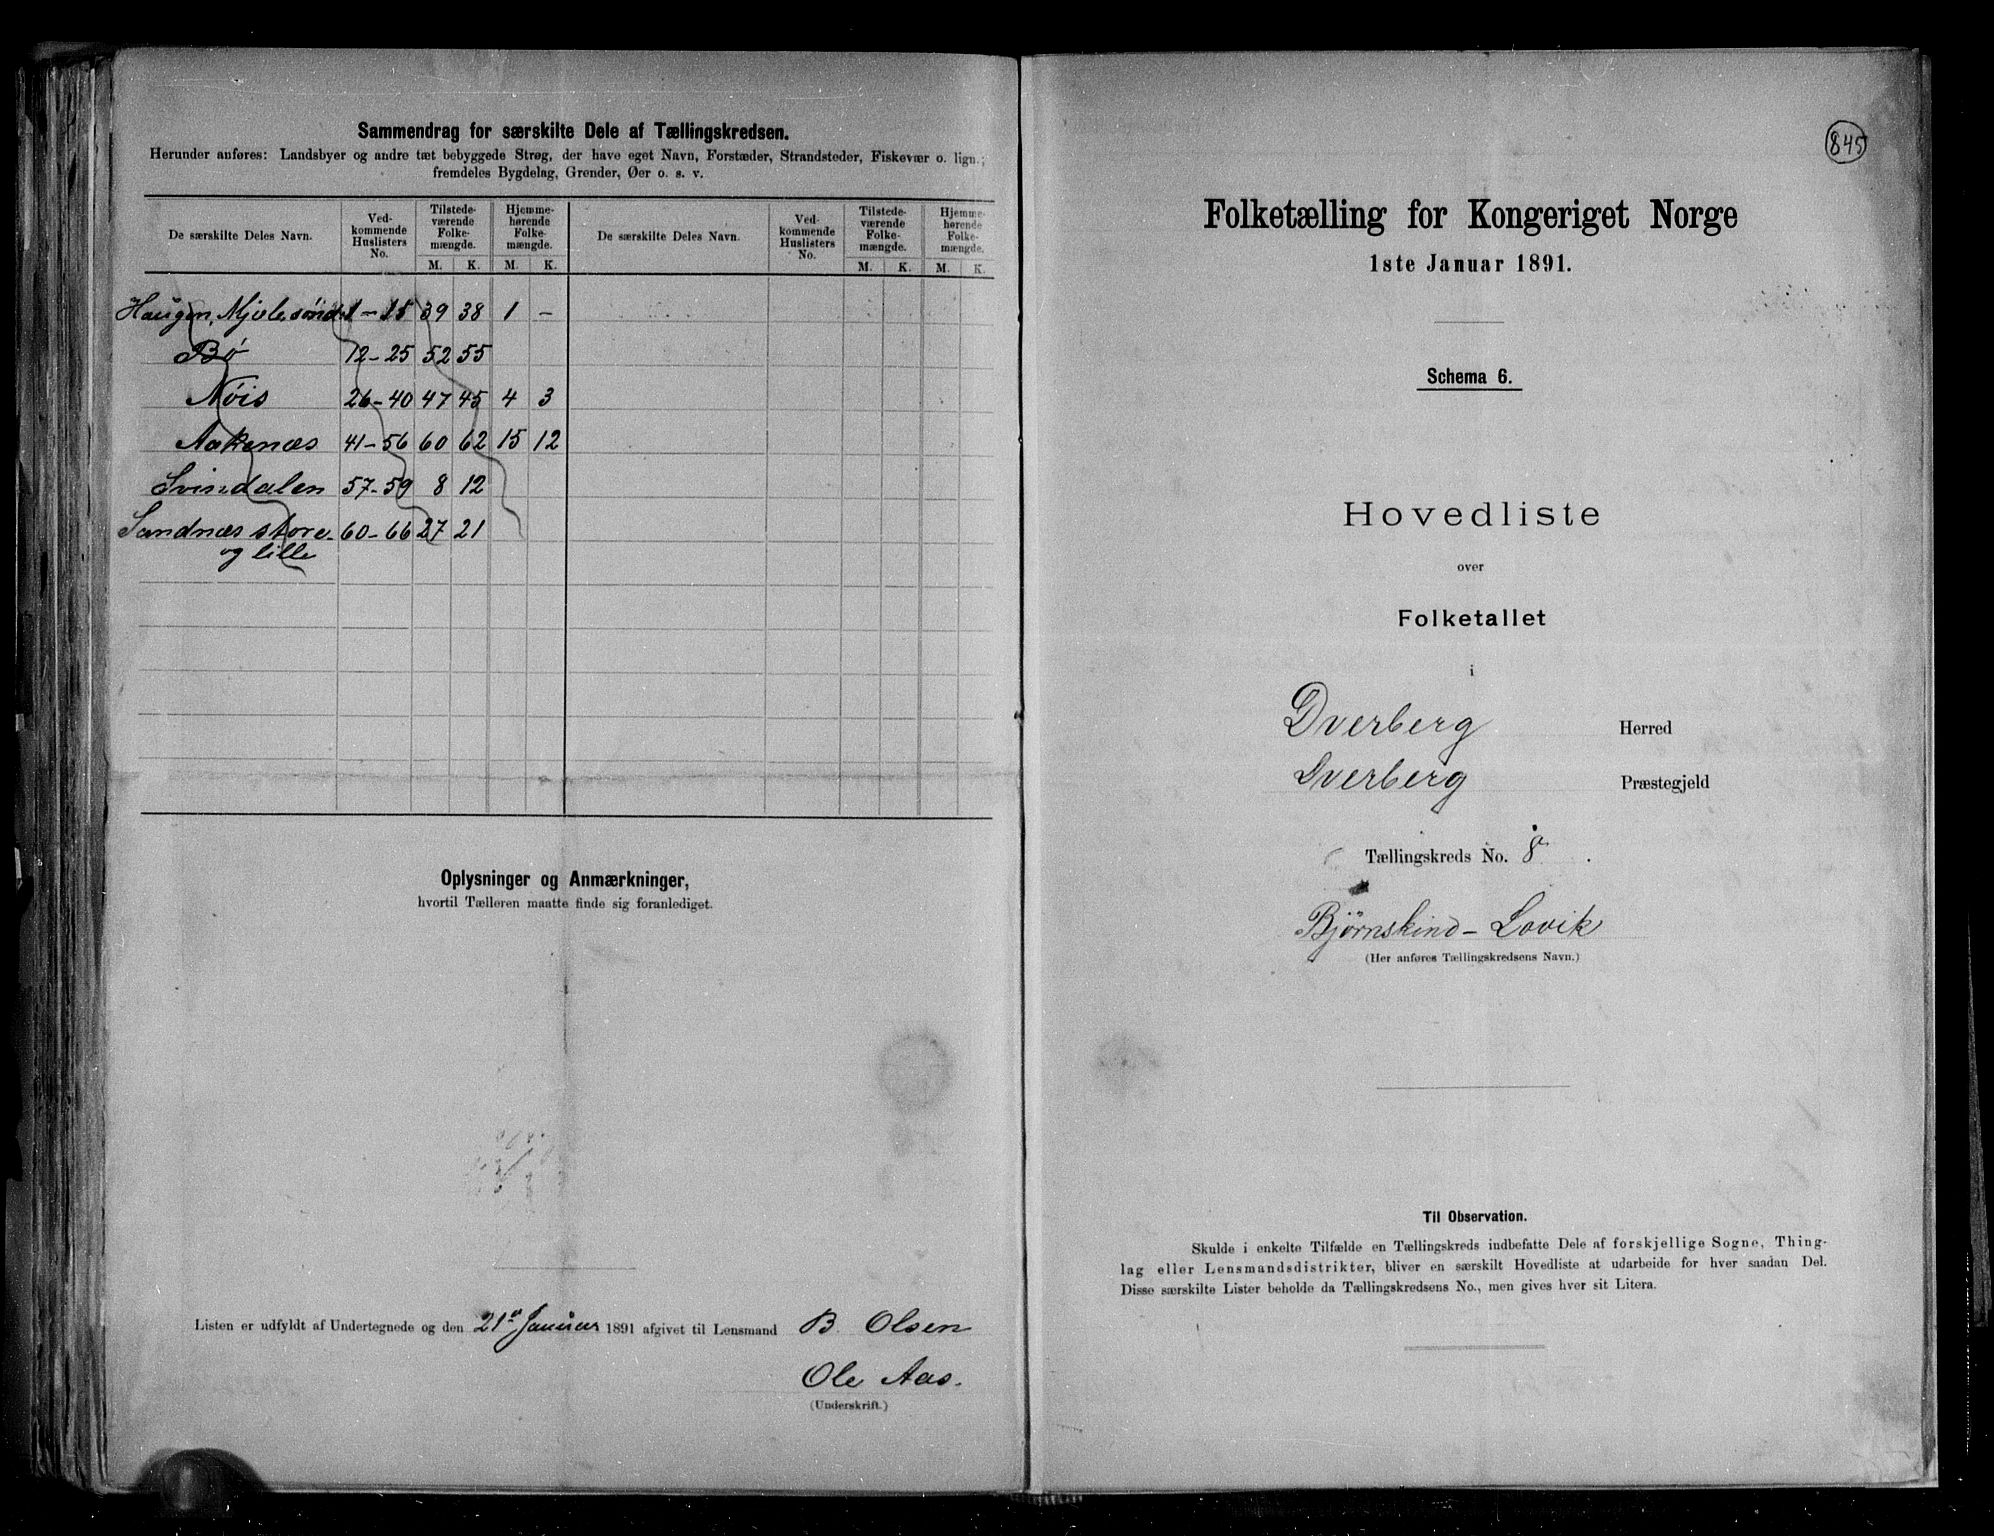 Sammendrag for særskilte Dele af Tællingskredsen.
Herunder anføres: Landsbyer og andre tæt bebyggede Strøg, der have eget Navn, Forstæder, Strandsteder, Fiskevær o. lign.;
fremdeles Bygdelag, Grender, Øer o. s. v.
De særskilte Deles Navn. Ved-kommende Huslisters No. Tilstede-værende Folke-mængde. Hjemme-hørende Folke-mængde. De særskilte Deles Navn. Ved-kommende Huslisters No. Tilstede-værende Folke-mængde. Hjemme-hørende Folke-mængde.
M. K. M. K. M. K. M. K.
Haugen, Mjelesönd 1-15 39 38 1 -
Bø 12-25 52 55
Nöis 26-40 47 45 4 3
Aakenæs 41-56 60 62 15 12
Svindalen 57-59 8 12
Sandnæs store 60-66 27 21
og lille
Oplysninger og Anmærkninger,
hvortil Tælleren maatte finde sig foranlediget.
Listen er udfyldt af Undertegnede og den 21de Januar 1891 afgivet til Lensmand B. Olsen
Ole Aas.
(Underskrift.)
845
Folketælling for Kongeriget Norge
1ste Januar 1891.
Schema 6.
Hovedliste
over
Folketallet
i
Dverberg Herred
Dverberg Præstegjeld
Tællingskreds No. 8.
Bjørnskind - Lovik
(Her anføres Tællingskredsens Navn.)
Til Observation.
Skulde i enkelte Tilfælde en Tællingskreds indbefatte Dele af forskjellige Sogne, Thing-
lag eller Lensmandsdistrikter, bliver en særskilt Hovedliste at udarbeide for hver saadan Del.
Disse særskilte Lister beholde da Tællingskredsens No., men gives hver sit Litera.